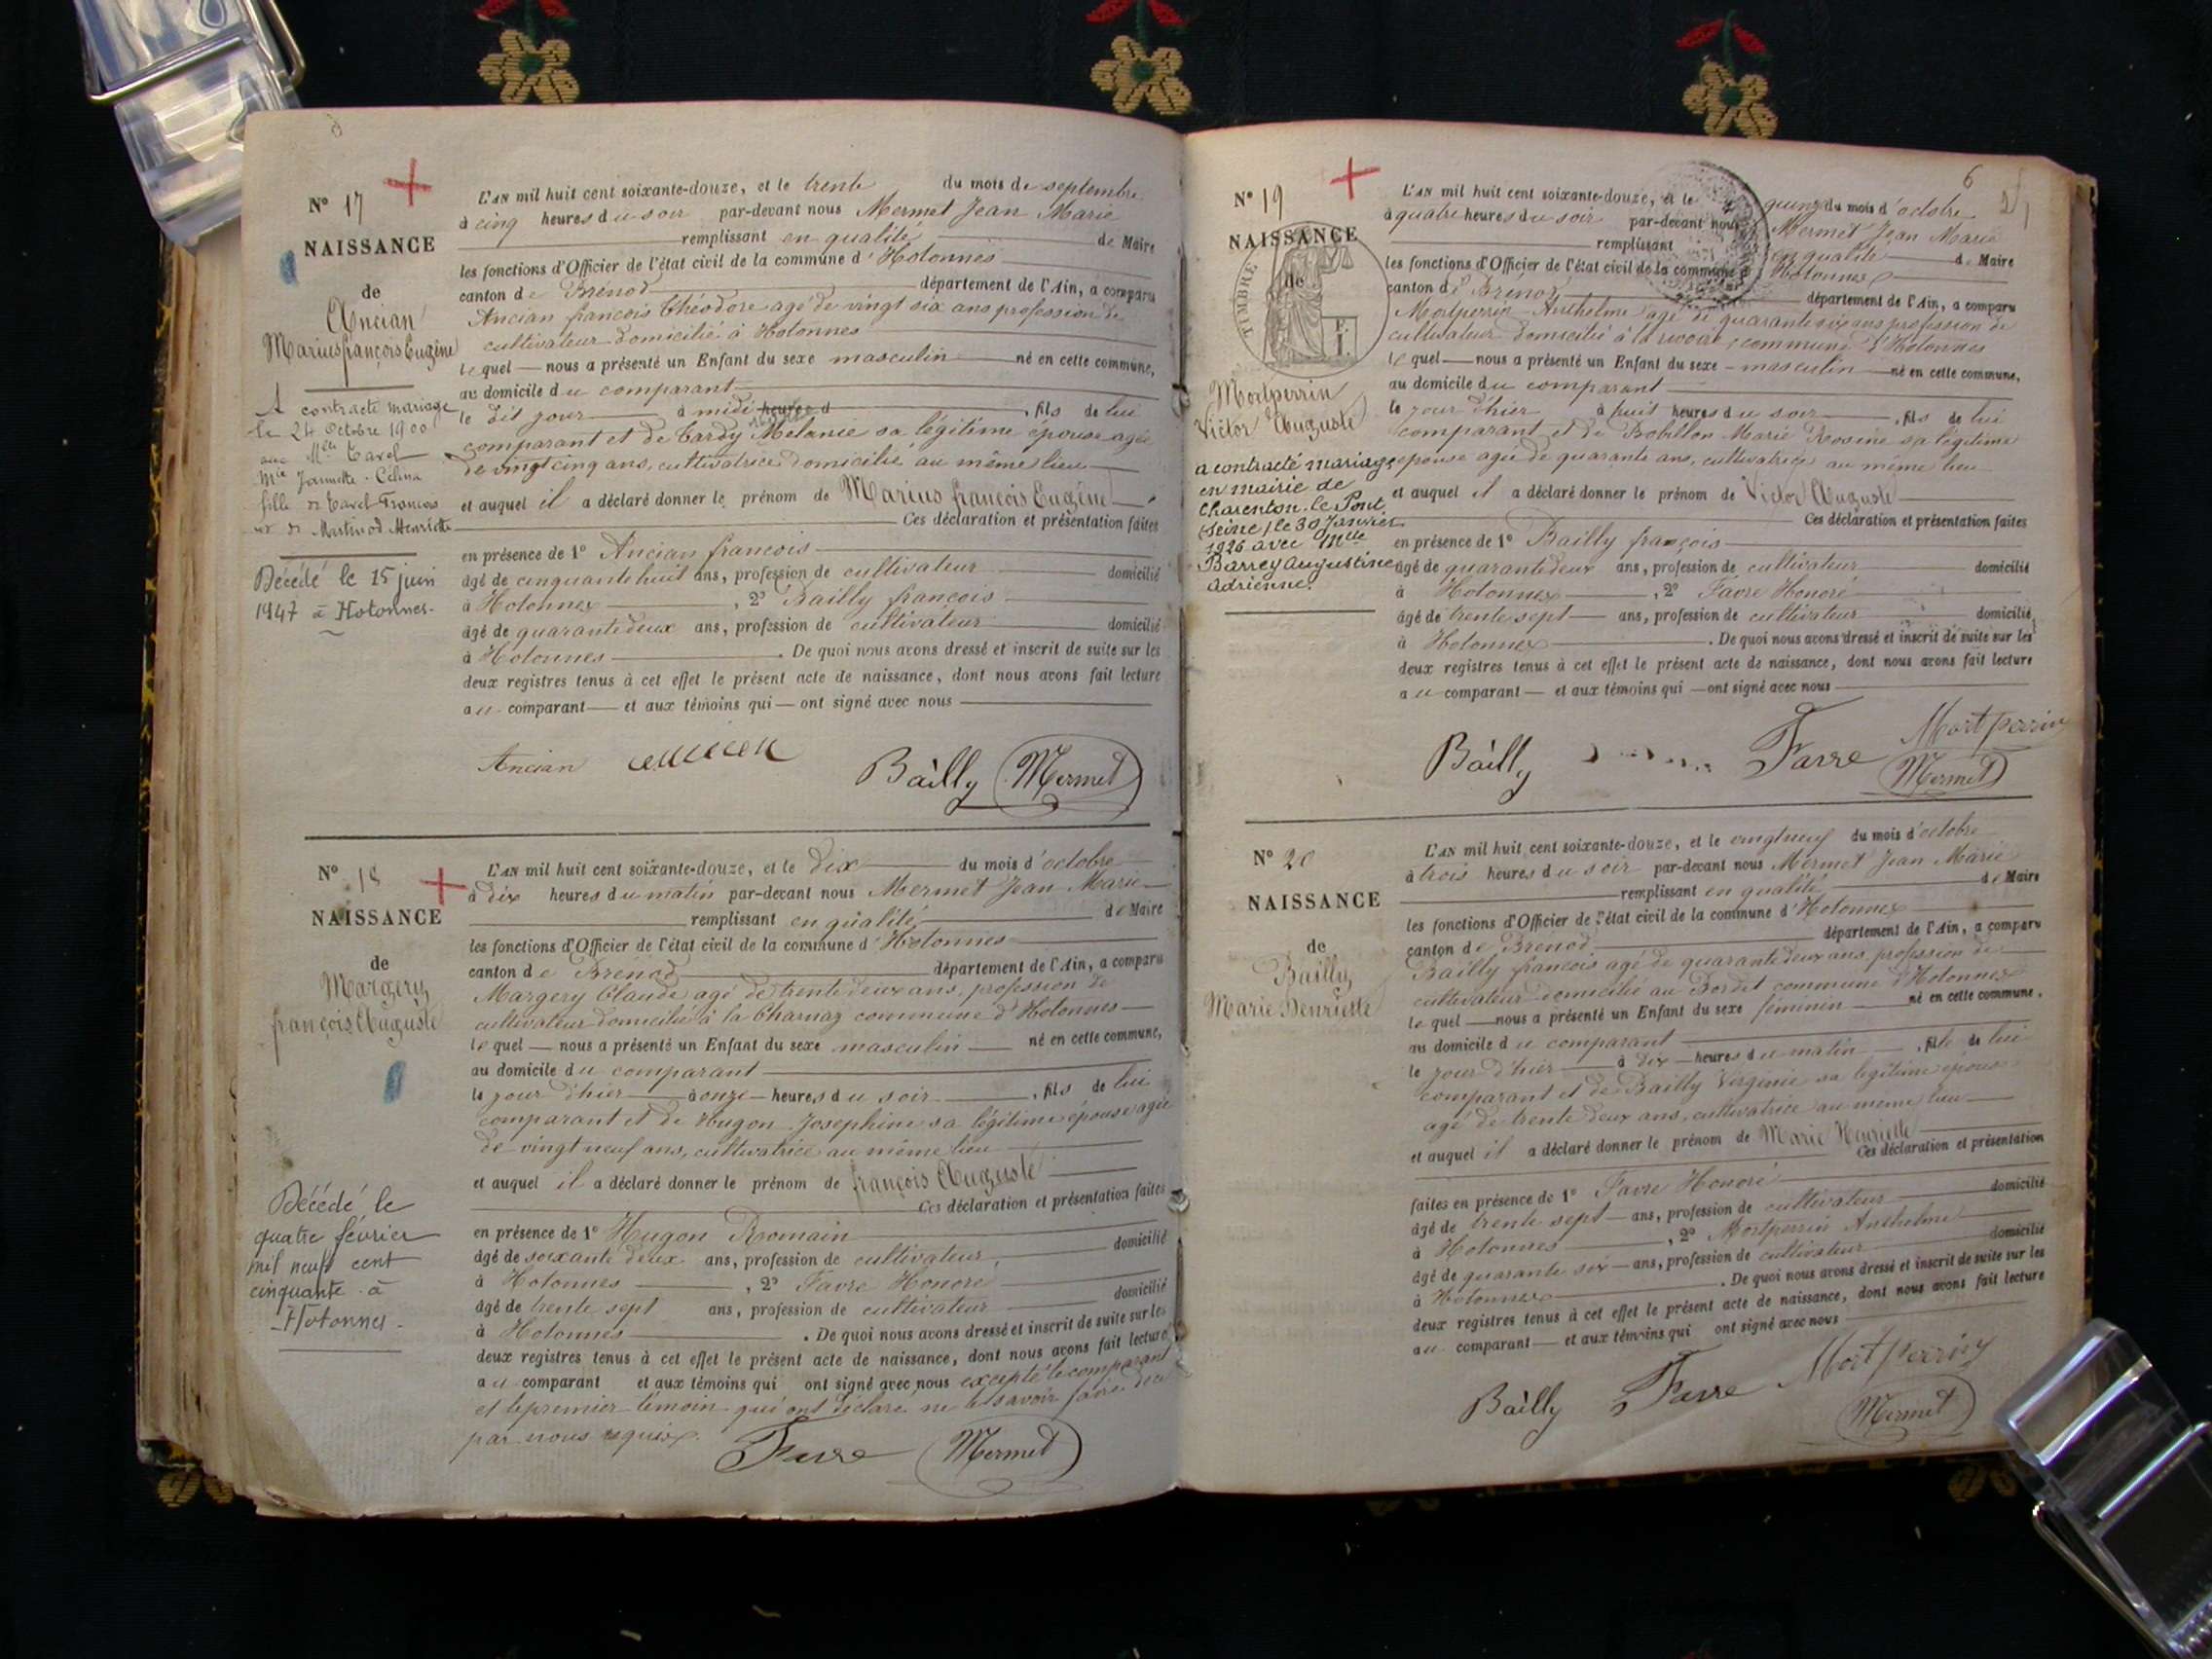 N° 17
NAISSANCE
de
Ancian
Marius françois Eugène
A contracté mariage
le 24 Octobre 1900
avec Mlle Cavel
Mie Jeannette Célina
fille de Cavel François
et de Martinod Henriette
Décédé le 15 juin
1947 à Hotonnes.
L'AN mil huit cent soixante-douze, et le trente du mois de septembre
à cinq heures du soir par-devant nous Mermet Jean Marie
remplissant en qualité de Maire
les fonctions d'Officier de l'état civil de la commune d'Hotonnes
canton de Brénod département de l'Ain, a comparu
Ancian françois théodore agé de vingt six ans profession de
cultivateur domicilié à Hotonnes
lequel nous a présenté un Enfant du sexe masculin né en cette commune,
au domicile du comparant
le dit jour à midi heures d , fils de lui
comparant et de Tardy Melanie sa légitime épouse agée
de vingt cinq ans, cultivatrice domicilié au même lieu
et auquel il a déclaré donner le prénom de Marius françois Eugène
Ces déclaration et présentation faites
en présence de 1° Ancian françois
âgé de cinquante huit ans, profession de cultivateur domicilié
à Hotonnes , 2° Bailly françois
âgé de quarante deux ans, profession de cultivateur domicilié
à Hotonnes . De quoi nous avons dressé et inscrit de suite sur les
deux registres tenus à cet effet le présent acte de naissance, dont nous avons fait lecture
au comparant et aux témoins qui ont signé avec nous
Ancian Bailly Mermet
N° 18
NAISSANCE
de
Margery
françois Auguste
Décédé le
quatre février
mil neuf cent
cinquante à
Hotonnes.
L'AN mil huit cent soixante-douze, et le dix du mois d'octobre
à dix heures du matin par-devant nous Mermet Jean Marie
remplissant en qualité de Maire
les fonctions d'Officier de l'état civil de la commune d'Hotonnes
canton de Brénod département de l'Ain, a comparu
Margery Claude agé de trente deux ans, profession de
cultivateur domicilié à la Charnaz commune d'Hotonnes
lequel nous a présenté un Enfant du sexe masculin né en cette commune,
au domicile du comparant
le jour d'hier à onze heures du soir , fils de lui
comparant et de Hugon Josephine sa légitime épouse agée
de vingt neuf ans, cultivatrice au même lieu
et auquel il a déclaré donner le prénom de françois Auguste
Ces déclaration et présentation faites
en présence de 1° Hugon Romain
âgé de soixante deux ans, profession de cultivateur, domicilié
à Hotonnes , 2° Favre Honoré
âgé de trente sept ans, profession de cultivateur domicilié
à Hotonnes . De quoi nous avons dressé et inscrit de suite sur les
deux registres tenus à cet effet le présent acte de naissance, dont nous avons fait lecture
au comparant et aux témoins qui ont signé avec nous excepté le comparant
et le premier témoin qui ont déclaré ne le savoir faire de ce
par nous requis.
Favre Mermet
6
N° 19
NAISSANCE
de
TIMBRE
Mortperrin
Victor Auguste
a contracté mariage
en mairie de
Charenton-le-Pont
(Seine) le 30 Janvier
1926 avec Mlle
Barrey Augustine
Adrienne.
L'AN mil huit cent soixante-douze, et le quinze du mois d'octobre
à quatre heures du soir par-devant nous Mermet Jean Marie
remplissant en qualité de Maire
les fonctions d'Officier de l'état civil de la commune d'Hotonnes
canton de Brénod département de l'Ain, a comparu
Mortperrin Anthelme agé de quarante six ans profession de
cultivateur domicilié à la rivoire, commune d'Hotonnes
lequel nous a présenté un Enfant du sexe masculin né en cette commune,
au domicile du comparant
le jour d'hier à huit heures du soir , fils de lui
comparant et de Bobillon Marie Rosine sa légitime
épouse agée de quarante ans, cultivatrice au même lieu
et auquel il a déclaré donner le prénom de Victor Auguste
Ces déclaration et présentation faites
en présence de 1° Bailly françois
âgé de quarante deux ans, profession de cultivateur domicilié
à Hotonnes , 2° Favre Honoré
âgé de trente sept ans, profession de cultivateur domicilié
à Hotonnes . De quoi nous avons dressé et inscrit de suite sur les
deux registres tenus à cet effet le présent acte de naissance, dont nous avons fait lecture
au comparant et aux témoins qui ont signé avec nous
Bailly Favre Mortperrin
Mermet
N° 20
NAISSANCE
de
Bailly
Marie Henriette
L'AN mil huit cent soixante-douze, et le vingt neuf du mois d'octobre
à trois heures du soir par-devant nous Mermet Jean Marie
remplissant en qualité de Maire
les fonctions d'Officier de l'état civil de la commune d'Hotonnes
canton de Brénod département de l'Ain, a comparu
Bailly françois agé de quarante deux ans profession de
cultivateur domicilié au Bordet commune d'Hotonnes
lequel nous a présenté un Enfant du sexe féminin né en cette commune,
au domicile du comparant
le jour d'hier à dix heures du matin , fille de lui
comparant et de Bailly Virginie sa légitime épouse
agé de trente deux ans, cultivatrice au même lieu
et auquel il a déclaré donner le prénom de Marie Henriette
Ces déclaration et présentation
faites en présence de 1° Favre Honoré
âgé de trente sept ans, profession de cultivateur domicilié
à Hotonnes , 2° Mortperrin Anthelme
âgé de quarante six ans, profession de cultivateur domicilié
à Hotonnes . De quoi nous avons dressé et inscrit de suite sur les
deux registres tenus à cet effet le présent acte de naissance, dont nous avons fait lecture
au comparant et aux témoins qui ont signé avec nous
Bailly Favre Mortperrin
Mermet